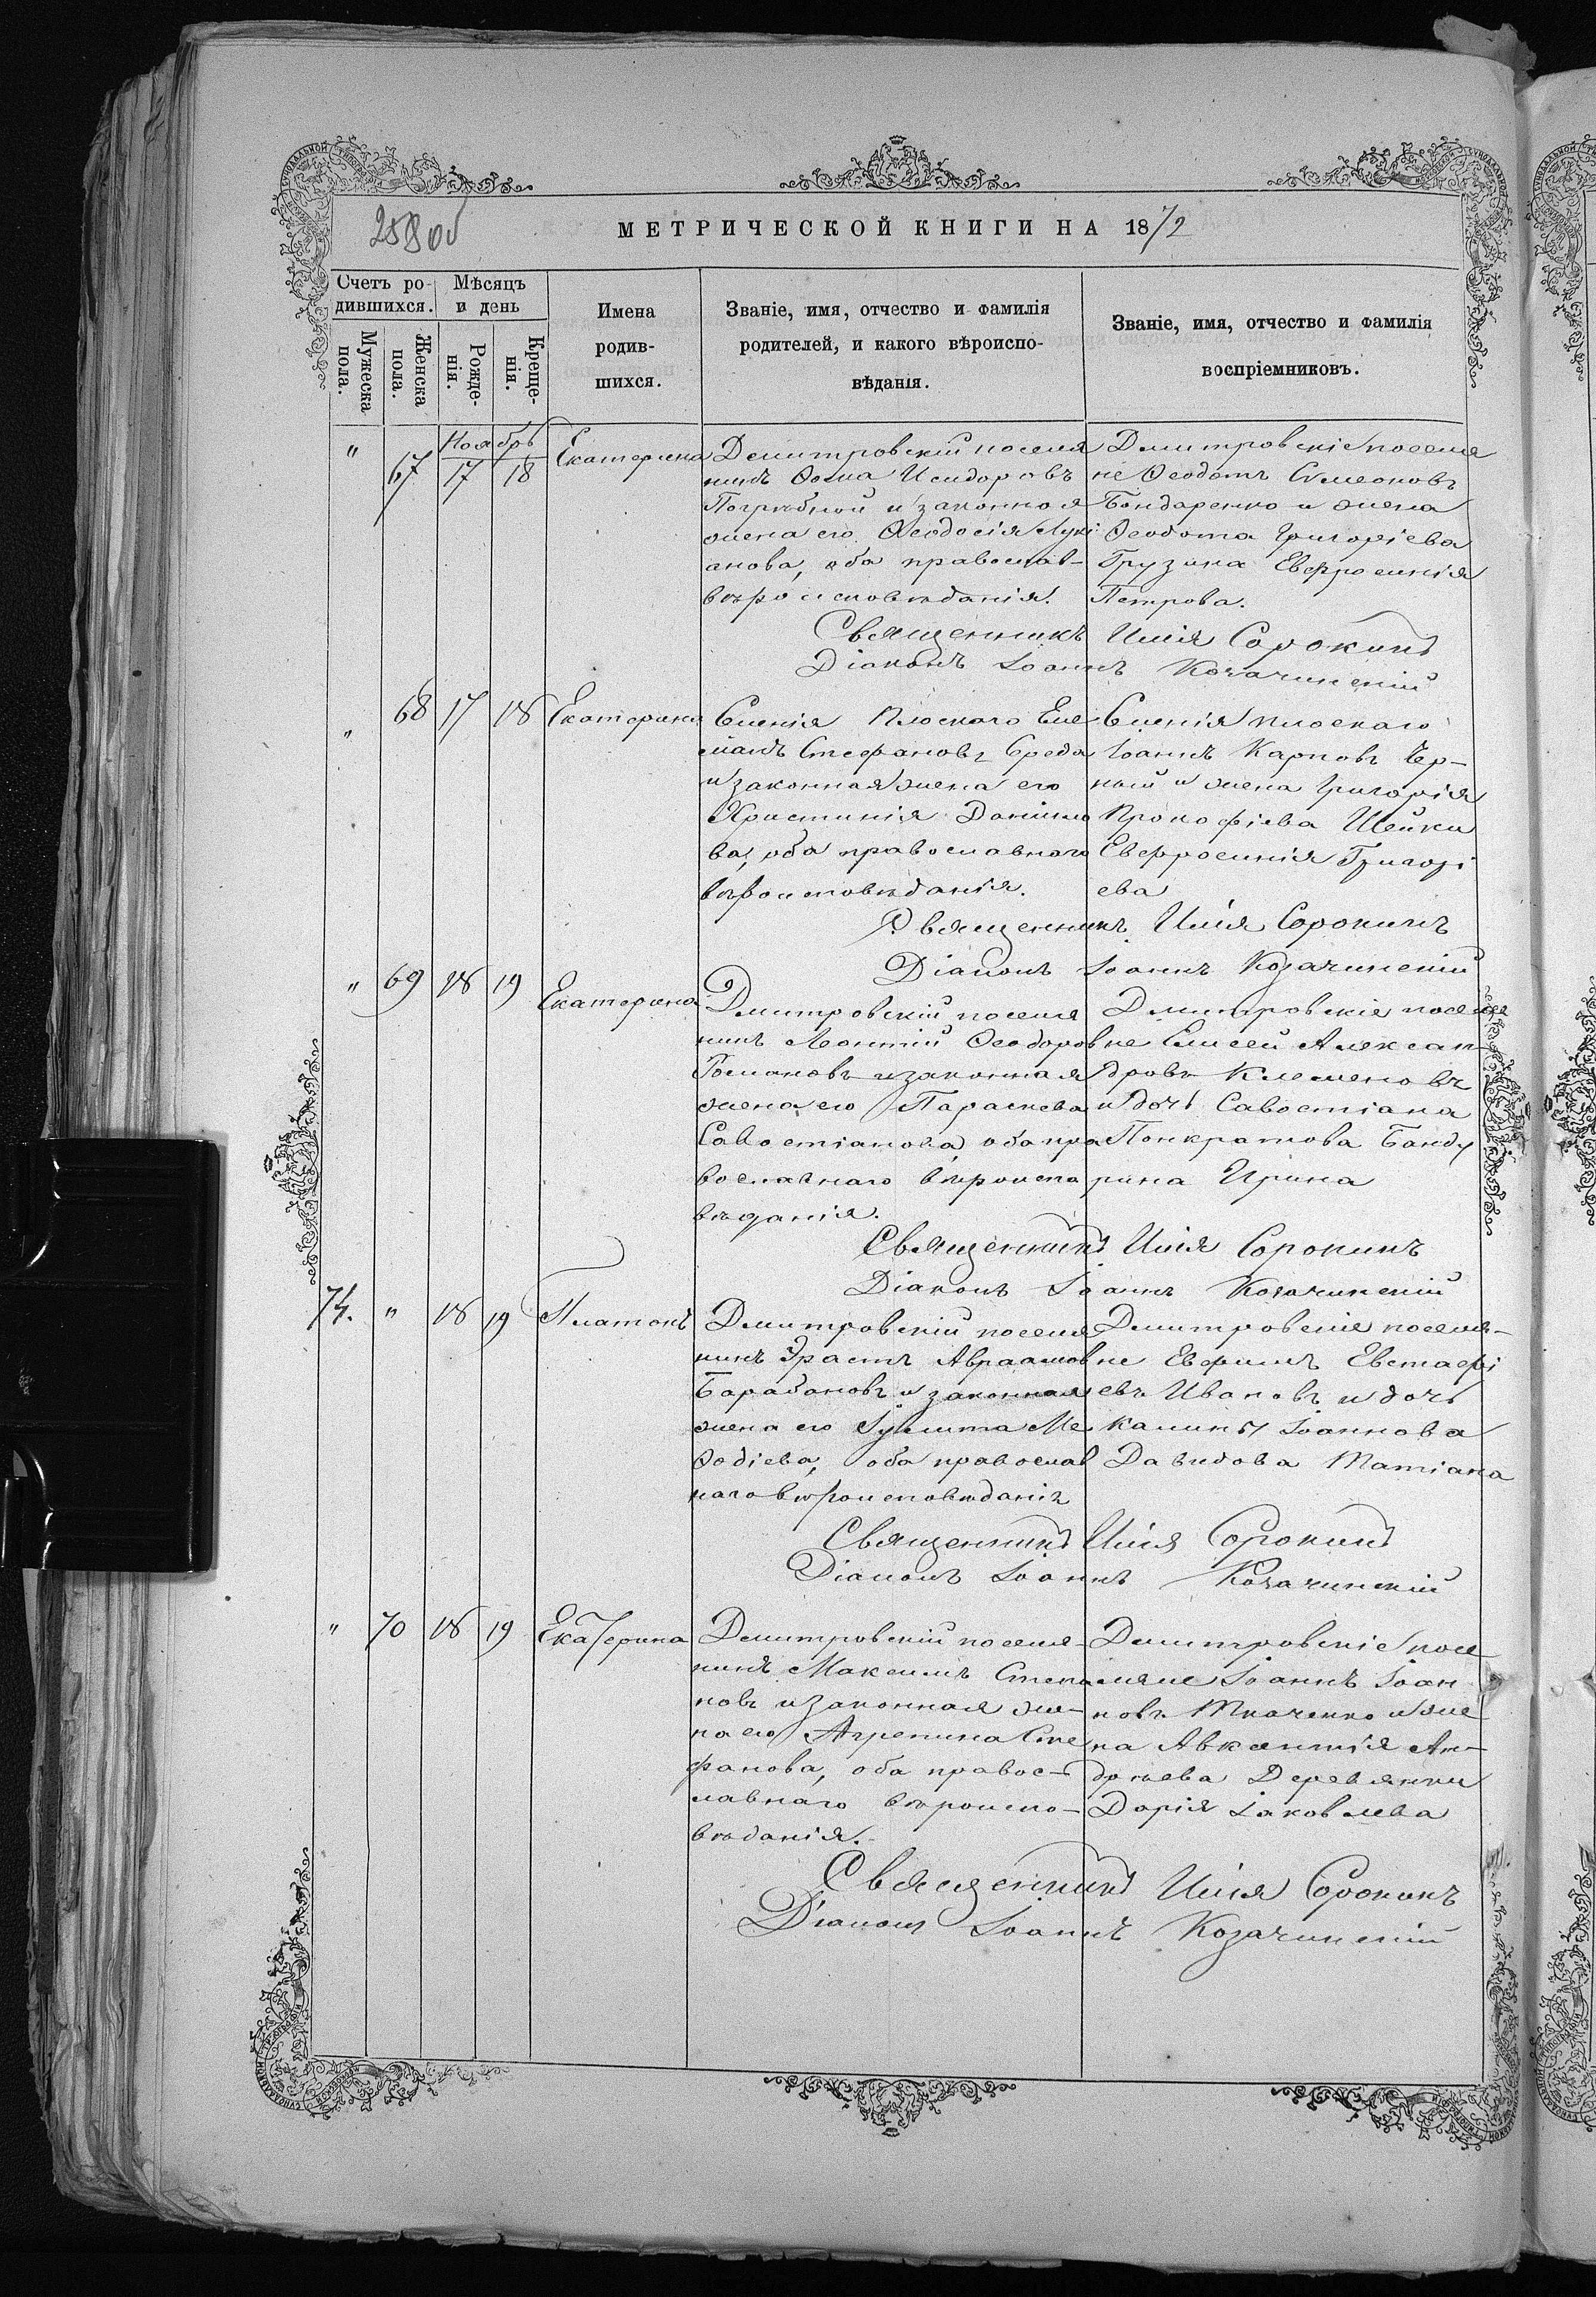 258 об
МЕТРИЧЕСКОЙ КНИГИ НА 1872
Счетъ ро-
дившихся.
Мѣсяцъ
и день
Мужеска
пола.
Женска
пола.
Рожде-
нія.
Креще-
нія.
Имена
родив-
шихся.
Званіе, имя, отчество и фамилія
родителей, и какого вѣроиспо-
вѣданія.
Званіе, имя, отчество и фамилія
воспріемниковъ.
Ноябрь
" 67 17 18 Екатерина
Дмитровскій поселя
нинъ Ѳома Исидоровъ
Погребной и законная
жена его Ѳеодосія Луки
анова, оба православ-
вѣроисповѣданія.
Дмитровскіе поселя
не Ѳеодотъ Симеоновъ
Бондаренко и жена
Ѳеодота Григоріева
Грузина Евфросинія
Петрова.
Священникъ Илія Сорокинъ
Діаконъ Іоаннъ Козачинскій
" 68 17 18 Екатерина
Селенія Плоскаго Еме
ліанъ Стефановъ Середа
и законная жена его
Христинія Даніило
ва, оба православнаго
вѣроисповѣданія.
Селенія Плоскаго
Іоаннъ Карповъ Чер-
ный и жена Григорія
Прокофіева Шейки
Евфросинія Григорі
ева
Священникъ Илія Сорокинъ
Діаконъ Іоаннъ Козачинскій
" 69 18 19 Екатерина
Дмитровскій поселя
нинъ Леонтій Ѳеодоровъ
Романовъ и законная
жена его Параскева
Савостіанова оба пра
вославнаго вѣроиспо
вѣданія.
Дмитровскіе поселя
не Елисей Алексан-
дровъ Клеменовъ
и дочь Савостіана
Понкратова Банду
рина Ирина
Священникъ Илія Сорокинъ
Діаконъ Іоаннъ Козачинскій
74. " 18 19 Платонъ
Дмитровскій поселя
нинъ Эрастъ Авраамовъ
Барабановъ и законная
жена его Іулита Ме
ѳодіева, оба православ
наго вѣроисповѣданія
Дмитровскіе поселя-
не Евфимъ Евстафі
евъ Ивановъ и дочь
Калины Іоаннова
Давидова Татіана
Священникъ Илія Сорокинъ
Діаконъ Іоаннъ Козачинскій
" 70 18 19 Екатерина
Дмитровскій поселя-
нинъ Максимъ Степа
новъ и законная же-
на его Агрепина Сте
фанова, оба правос-
лавнаго вѣроиспо-
вѣданія.
Дмитровскіе посе
ляне Іоаннъ Іоан
новъ Ткаченко и же
на Авксентія Ан-
дреева Деревянки
Дарія Іаковлева
Священникъ Илія Сорокинъ
Діаконъ Іоаннъ Козачинскій